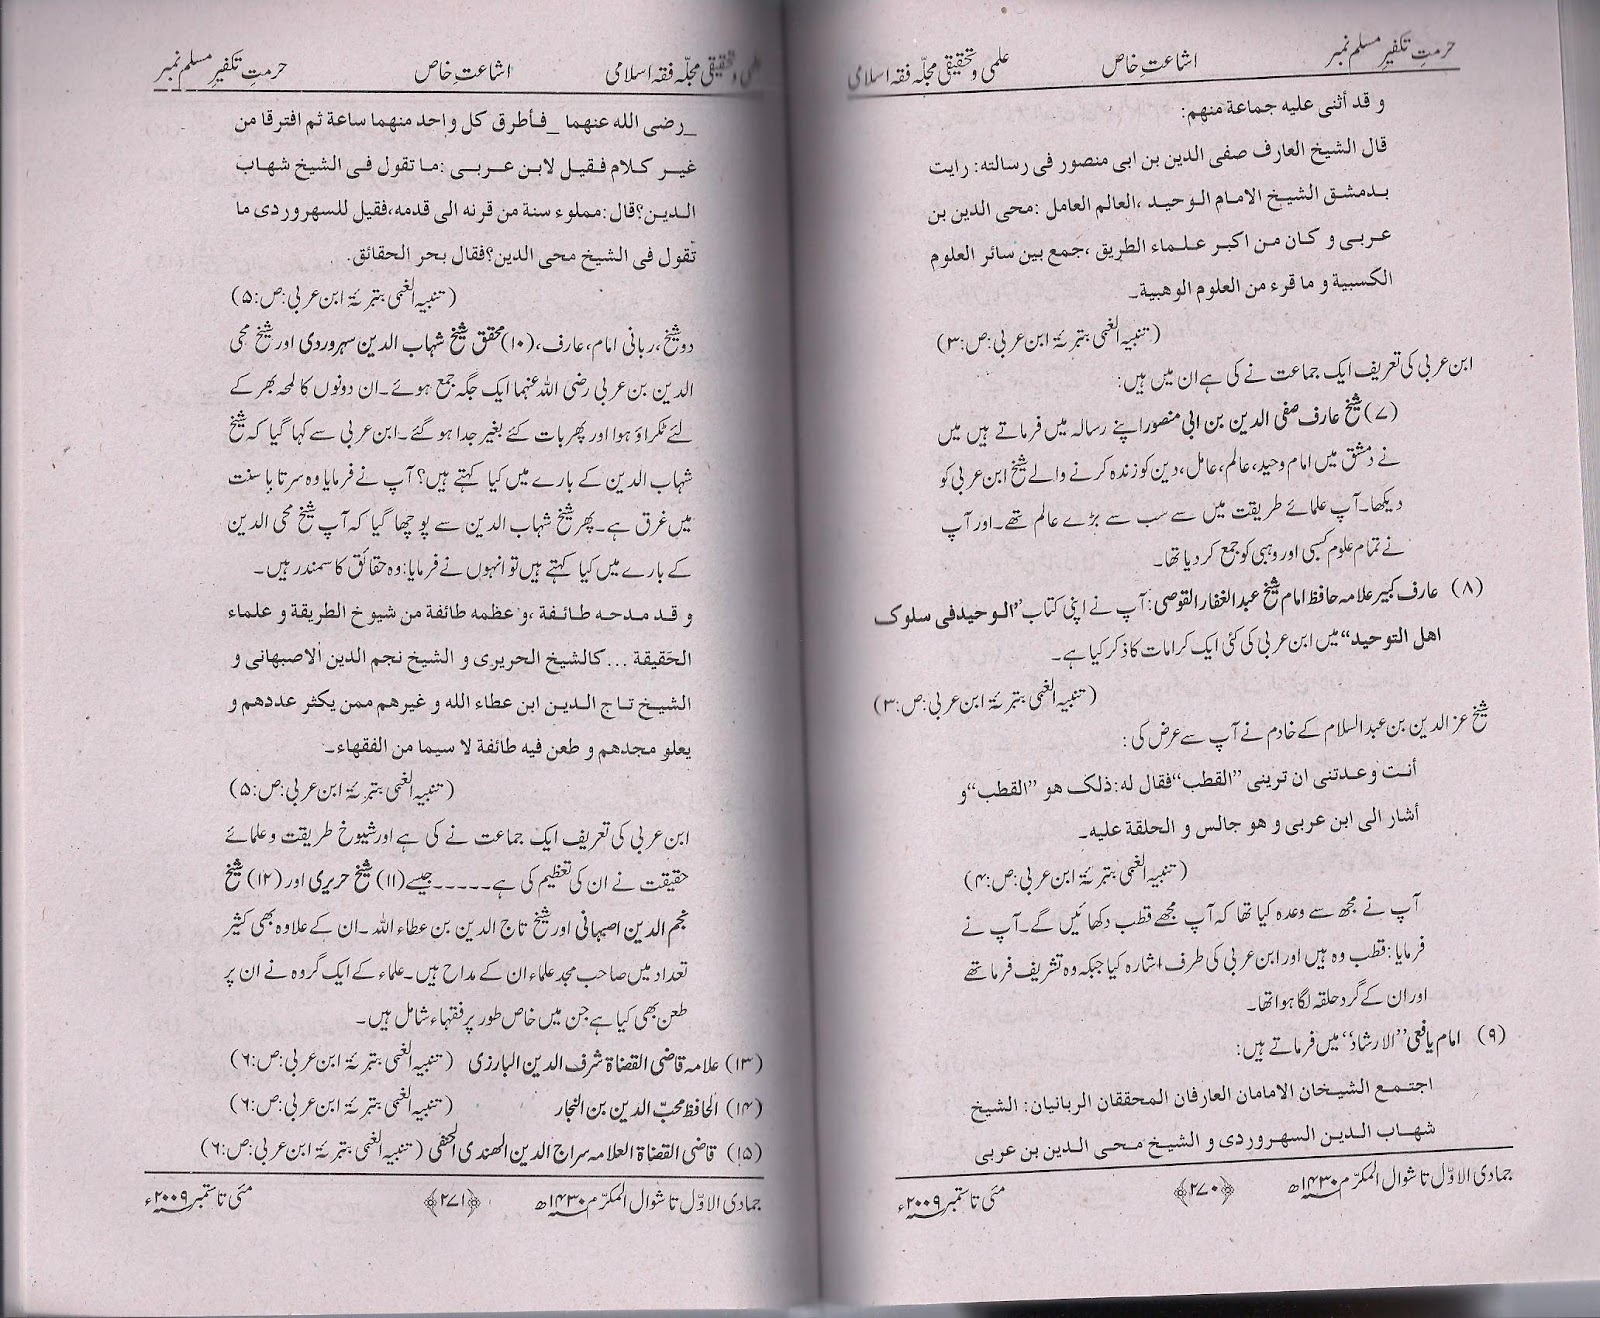 حرمتِ تکفیرِ مسلم نمبر اشاعتِ خاص علمی و تحقیقی مجلّہ فقہ اسلامی
و قد أثنى عليه جماعة منهم:
قال الشيخ العارف صفى الدين بن ابى منصور فى رسالته: رايت
بدمشق الشيخ الامام الوحيد ،العالم العامل :محى الدين بن
عربى و كان من اكبر علماء الطريق ،جمع بين سائر العلوم
الكسبية و ما قرء من العلوم الوهبية۔
(تنبیہ الغبی بتبرئۃ ابن عربی:ص:۳)
ابن عربی کی تعریف ایک جماعت نے کی ہے ان میں ہیں:
(۷) شیخ عارف صفی الدین بن ابی منصور اپنے رسالہ میں فرماتے ہیں میں
نے دمشق میں امام وحید، عالم، عامل، دین کو زندہ کرنے والے شیخ ابن عربی کو
دیکھا۔ آپ علمائے طریقت میں سے سب سے بڑے عالم تھے۔ اور آپ
نے تمام علوم کسبی اور وہبی کو جمع کر دیا تھا۔
(۸) عارف کبیر علامہ حافظ امام شیخ عبدالغفار القوصی: آپ نے اپنی کتاب ”الوحيد فى سلوك
اهل التوحيد“ میں ابن عربی کی کئی ایک کرامات کا ذکر کیا ہے۔
(تنبیہ الغبی بتبرئۃ ابن عربی:ص:۳)
شیخ عز الدین بن عبد السلام کے خادم نے آپ سے عرض کی:
أنت وعدتنى ان ترينى ”القطب“ فقال له: ذلك هو ”القطب“ و
أشار الى ابن عربى و هو جالس و الحلقة عليه۔
(تنبیہ الغبی بتبرئۃ ابن عربی:ص:۴)
آپ نے مجھ سے وعدہ کیا تھا کہ آپ مجھے قطب دکھائیں گے۔ آپ نے
فرمایا: قطب وہ ہیں اور ابن عربی کی طرف اشارہ کیا جبکہ وہ تشریف فرما تھے
اور ان کے گرد حلقہ لگا ہوا تھا۔
(۹) امام یافعی ”الارشاد“ میں فرماتے ہیں:
اجتمع الشيخان الامامان العارفان المحققان الربانيان: الشيخ
شهاب الدين السهروردى و الشيخ محى الدين بن عربى
جمادی الاوّل تا شوال المکرّم ۱۴۳۰ھ ﴿۲۷۰﴾ مئی تا ستمبر ۲۰۰۹ء
علمی و تحقیقی مجلّہ فقہ اسلامی اشاعتِ خاص حرمتِ تکفیرِ مسلم نمبر
_رضى الله عنهما_ فأطرق كل واحد منهما ساعة ثم افترقا من
غير كلام فقيل لابن عربى :ما تقول فى الشيخ شهاب
الدين؟قال :مملوء سنة من قرنه الى قدمه،فقيل للسهروردى ما
تقول فى الشيخ محى الدين؟فقال بحر الحقائق.
(تنبیہ الغبی بتبرئۃ ابن عربی:ص:۵)
دو شیخ، ربانی امام، عارف، (۱۰) محقق شیخ شہاب الدین سہروردی اور شیخ محی
الدین بن عربی رضی اللہ عنہما ایک جگہ جمع ہوئے۔ ان دونوں کا لمحہ بھر کے
لئے ٹکراؤ ہوا اور پھر بات کئے بغیر جدا ہو گئے۔ ابن عربی سے کہا گیا کہ شیخ
شہاب الدین کے بارے میں کیا کہتے ہیں؟ آپ نے فرمایا وہ سر تا پا سنت
میں غرق ہے۔ پھر شیخ شہاب الدین سے پوچھا گیا کہ آپ شیخ محی الدین
کے بارے میں کیا کہتے ہیں تو انہوں نے فرمایا: وہ حقائق کا سمندر ہیں۔
و قد مدحه طائفة ،و عظمه طائفة من شيوخ الطريقة و علماء
الحقيقة ... كالشيخ الحريرى و الشيخ نجم الدين الاصبهانى و
الشيخ تاج الدين ابن عطاء الله و غيرهم ممن يكثر عددهم و
يعلو مجدهم و طعن فيه طائفة لا سيما من الفقهاء۔
(تنبیہ الغبی بتبرئۃ ابن عربی:ص:۵)
ابن عربی کی تعریف ایک جماعت نے کی ہے اور شیوخ طریقت و علمائے
حقیقت نے ان کی تعظیم کی ہے۔۔۔۔۔ جیسے (۱۱) شیخ حریری اور (۱۲) شیخ
نجم الدین اصبہانی اور شیخ تاج الدین بن عطاء اللہ ۔ ان کے علاوہ بھی کثیر
تعداد میں صاحب مجد علماء ان کے مداح ہیں۔ علماء کے ایک گروہ نے ان پر
طعن بھی کیا ہے جن میں خاص طور پر فقہاء شامل ہیں۔
(۱۳) علامہ قاضی القضاۃ شرف الدین البارزی (تنبیہ الغبی بتبرئۃ ابن عربی:ص:۶)
(۱۴) الحافظ محبّ الدین بن النجار (تنبیہ الغبی بتبرئۃ ابن عربی:ص:۶)
(۱۵) قاضی القضاۃ العلامہ سراج الدین الھندی الحنفی (تنبیہ الغبی بتبرئۃ ابن عربی:ص:۶)
جمادی الاوّل تا شوال المکرّم ۱۴۳۰ھ ﴿۲۷۱﴾ مئی تا ستمبر ۲۰۰۹ء